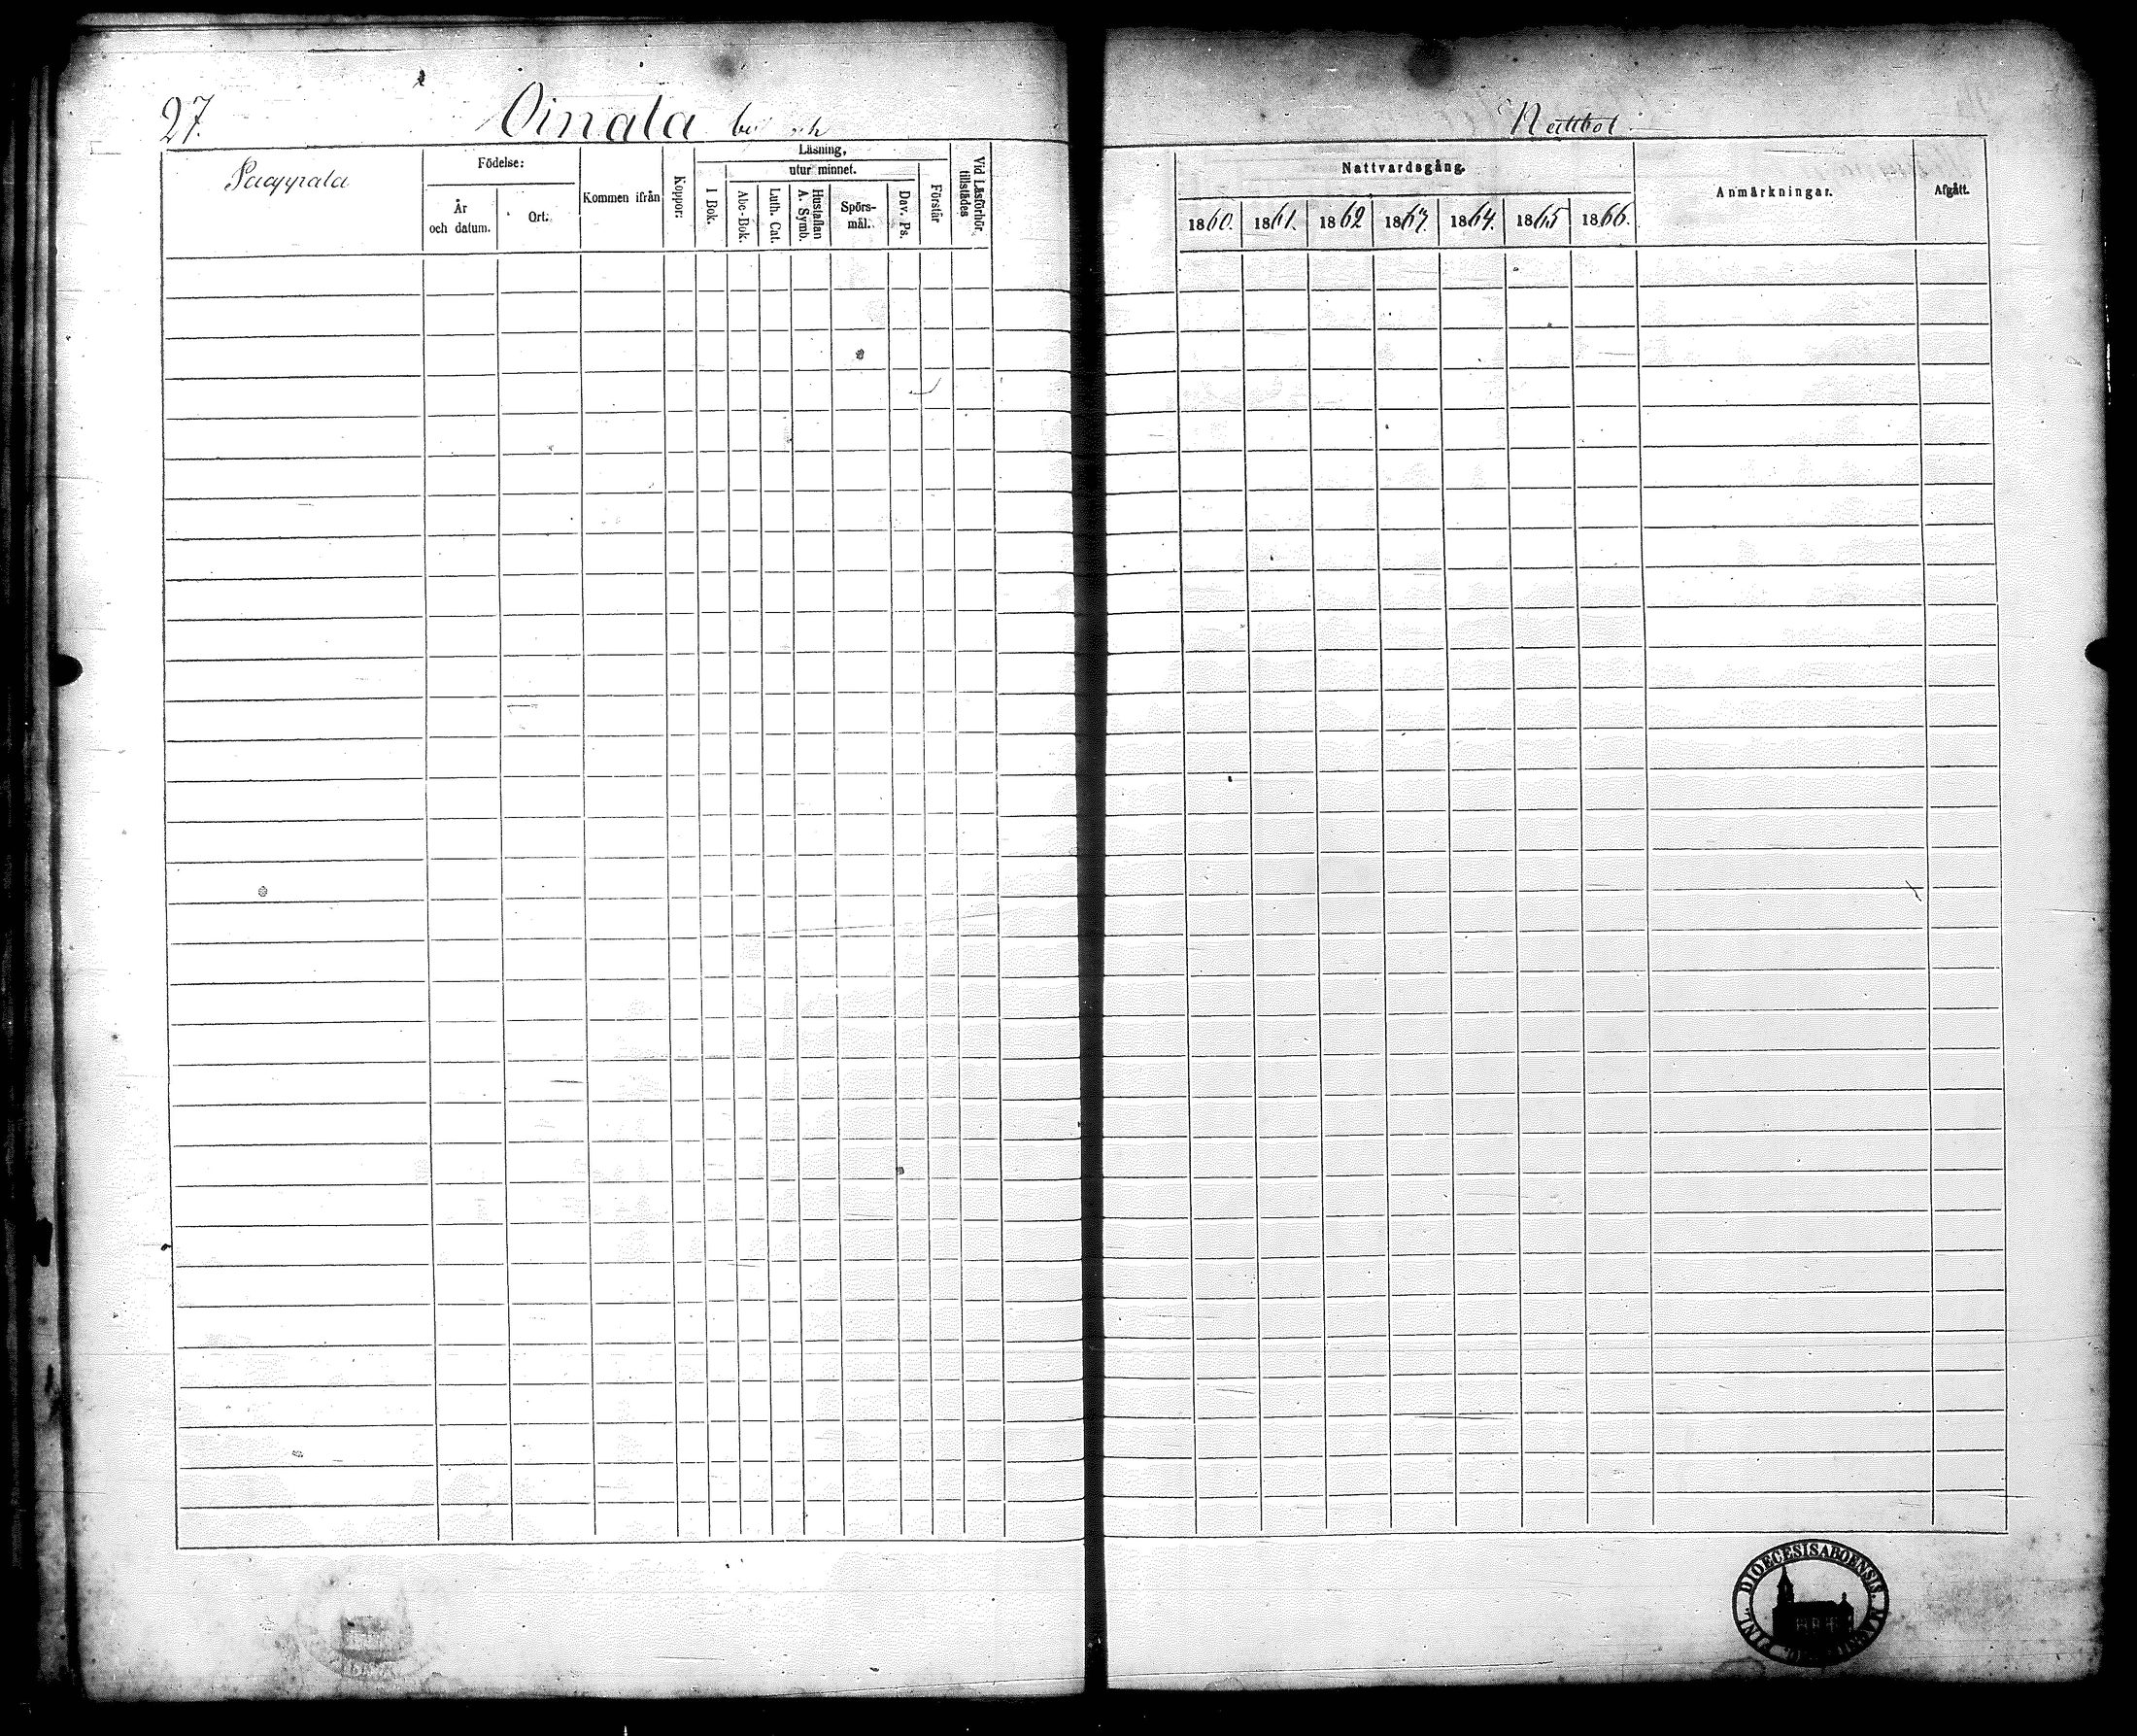 27. Oinala by och
Nattbol
Paappala
Födelse:
År och datum.
Ort:
Kommen ifrån
Koppor:
Läsning,
utur minnet.
I Bok.
Abc-Bok.
Luth. Cat.
Hustaflan A. Symb.
Spörs-mål.
Dav. Ps.
Förstår
Vid Läsförhör tillstädes
Nattvardsgång.
1860. 1861. 1862 1863. 1864. 1865 1866.
Anmärkningar.
Afgått.
DIOECESIS ABOENSIS